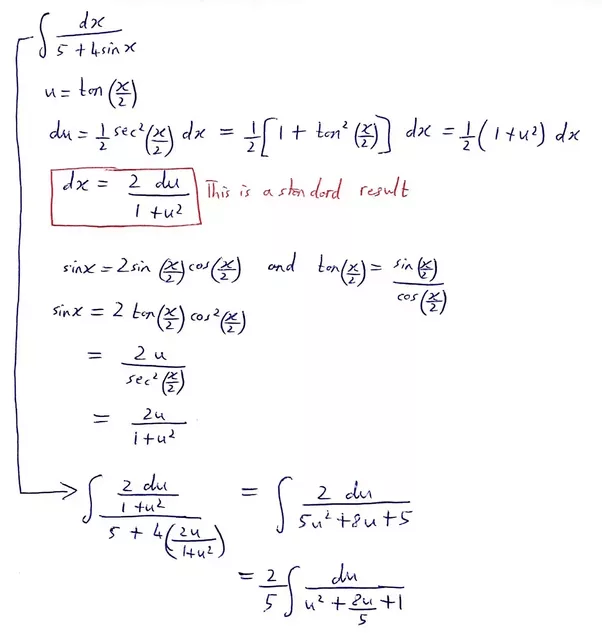 ∫ dx / (5 + 4sinx)
u = tan(x/2)
du = 1/2 sec²(x/2) dx = 1/2[1 + tan²(x/2)] dx = 1/2(1+u²) dx
dx = 2 du / (1+u²) This is a standard result
sinx = 2sin(x/2)cos(x/2) and tan(x/2) = sin(x/2) / cos(x/2)
sinx = 2 tan(x/2) cos²(x/2)
= 2u / sec²(x/2)
= 2u / (1+u²)
∫ (2 du / (1+u²)) / (5 + 4(2u / (1+u²))) = ∫ 2 du / (5u²+8u+5)
= 2/5 ∫ du / (u² + 8u/5 + 1)